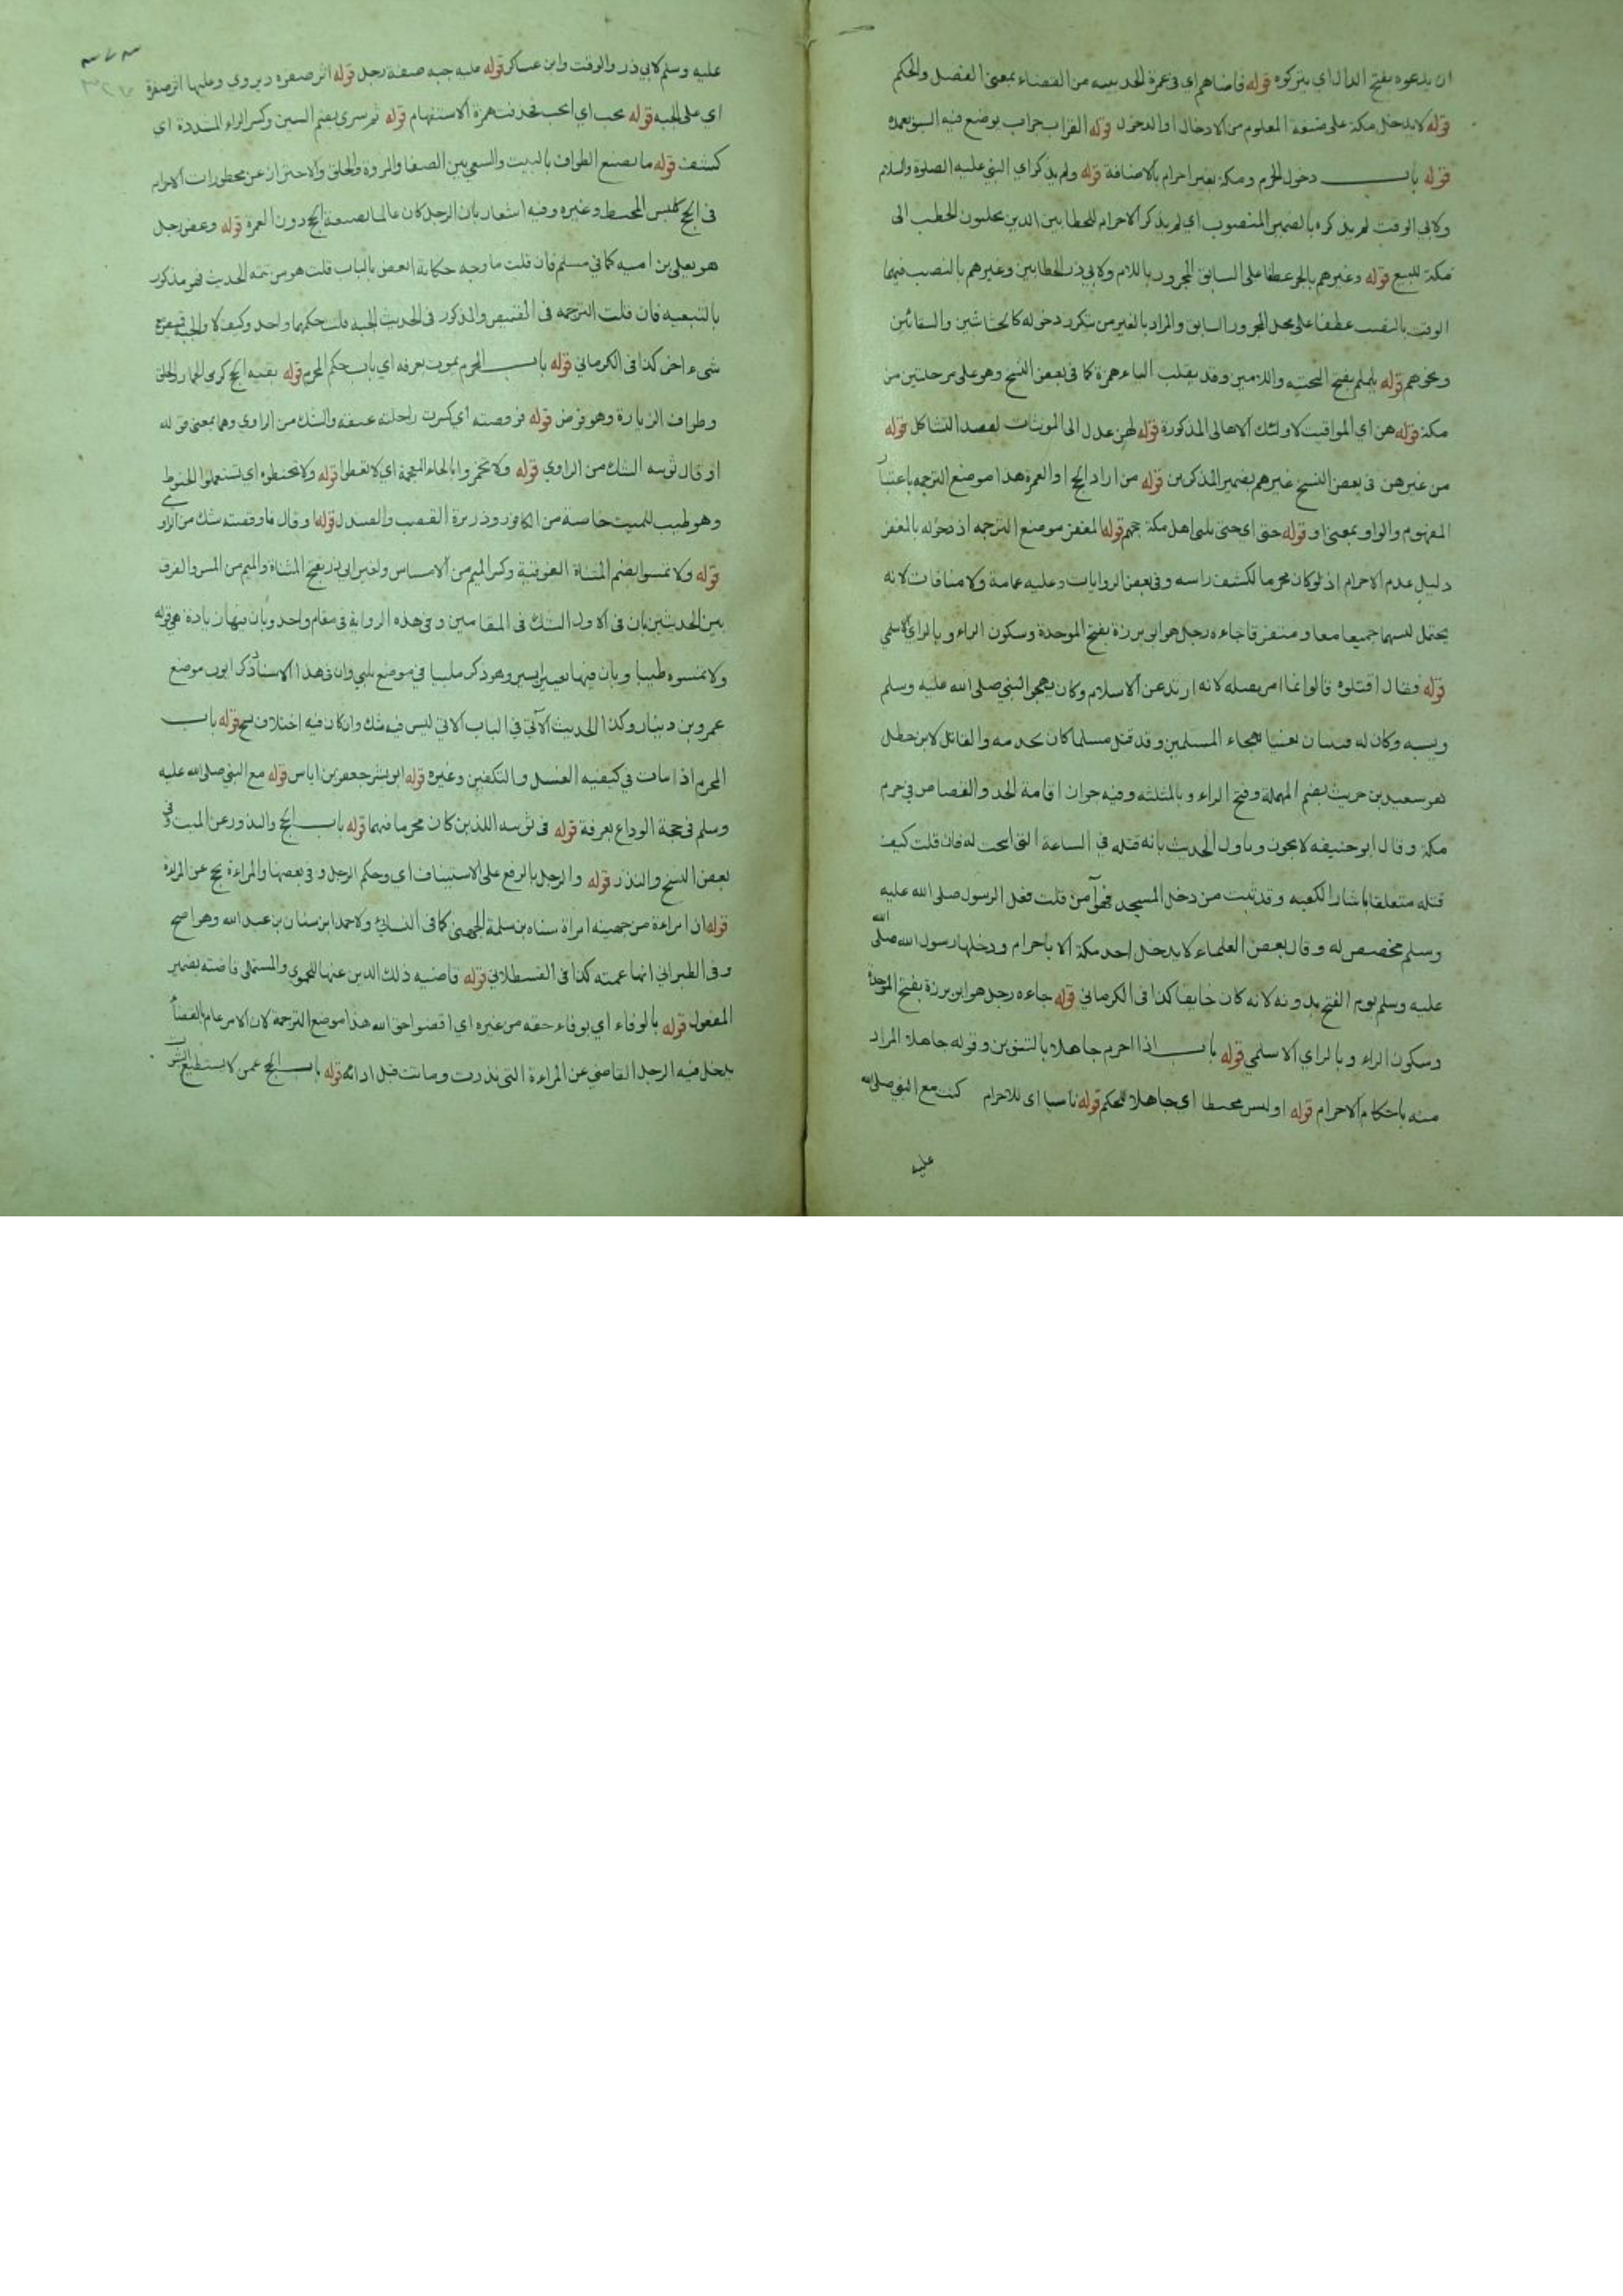 ان يدعوه بفتح الدال اي يتركوه قوله قاضاهم اي في عمرة الحديبيه من القضاء بمعنى الفصل والحكم
قوله لا يدخل مكة على صيغة المعلوم من الادخال او الدخول قوله القراب جراب يوضع فيه السيف بغمده
قوله باب دخول الحرم ومكة بغير احرام بالاضافة قوله ولم يذكر اي النبي عليه الصلوة والسلام
ولابي الوقت لم يذكره بالضمير المنصوب اي لم يذكر الاحرام للحطابين الذين يجلبون الحطب الى
مكة للبيع قوله وغيرهم بالجر عطفا على السابق المجرور باللام ولابي ذر الحطابين وغيرهم بالنصب فيهما
الوقت بالنصب عطفا على محل المجرور السابق والمراد بالغير من يتكرر دخوله كالحشاشين والسقائين
ونحوهم قوله يلملم بفتح التحتيه واللامين وقد يقلب الياء همزة كما في بعض النسخ وهو على مرحلتين من
مكة قوله هن اي المواقيت لاولئك الاهالى المذكورة قوله لهن عدل الى المؤنثات لقصد التشاكل قوله
من غيرهن في بعض النسخ غيرهم بضمير المذكرين قوله من اراد الحج او العمرة هذا موضع الترجمه باعتبار
المفهوم والواو بمعنى او قوله حتى اى حتى يلبى اهل مكة حجهم قوله المغفر موضع الترجمه اذ دخوله بالمغفر
دليل عدم الاحرام اذ لو كان محرما لكشف راسه وفي بعض الروايات وعليه عمامة ولا منافات لانه
يحتمل لبسهما جميعا معا ومتفرقا جاءه رجل هو ابو برزة بفتح الموحدة وسكون الراء وبالزاي الاسلمي
قوله فقال اقتلوه قالوا انما امر بقتله لانه ارتد عن الاسلام وكان يهجو النبي صلى الله عليه وسلم
ويسبه وكان له قينتان تغنيا بهجاء المسلمين وقد قتل مسلما كان يخدمه والقاتل لابن خطل
هو سعيد بن حريث بضم المهملة وفتح الراء وبالمثلثه وفيه جواز اقامة الحد والقصاص في حرم
مكة وقال ابو حنيفه لا يجوز وتاول الحديث بانه قتله في الساعة التي ابيحت له فان قلت كيف
قتله متعلقا باستار الكعبه وقد ثبت من دخل المسجد فهو آمن قلت فعل الرسول صلى الله عليه
وسلم مخصص له وقال بعض العلماء لا يدخل احد مكة الا باحرام ودخلها رسول الله صلى الله
عليه وسلم يوم الفتح بدونه لانه كان خايفا كذا في الكرماني قوله جاءه رجل هو ابن برزة بفتح الموحدة
وسكون الراء وبالزاي الاسلمي قوله باب اذا احرم جاهلا بالتنوين وقوله جاهلا المراد
منه باحكام الاحرام قوله او لبس مخيطا اي جاهلا للحكم قوله ناسيا اى للاحرام كنت مع النبي صلى الله
عليه
عليه وسلم لابي ذر والوقت وابن عساكر قوله عليه جبه صفة رجل قوله اثر صفره ويروي وعليها اثر صفرة
اي على الجبه قوله تحب اي اتحب فحذفت همزة الاستفهام قوله ثم سري بضم السين وكسر الراء المشددة اي
كشف قوله ما تصنع الطواف بالبيت والسعي بين الصفا والمروة والحلق والاحتراز عن محظورات الاحرام
في الحج كلبس المخيط وغيره وفيه اشعار بان الرجل كان عالما بصفة الحج دون العمرة قوله وعض رجل
هو يعلى بن اميه كما في مسلم فان قلت ما وجه حكاية العض بالباب قلت هو من تتمة الحديث فهو مذكور
بالتبعيه فان قلت الترجمه في القميص والمذكور في الحديث الجبه قلت حكمهما واحد وكيف لا والجبة قميص مع
شيء اخر كذا في الكرماني قوله باب المحرم يموت بعرفه اي باب حكم المحرم قوله بقية الحج كرمي الجمار والحلق
وطواف الزيارة وهو فرض قوله فوقصته اي كسرت راحلته عنقه والشك من الراوي وهما بمعنى قوله
او قال ثوبيه الشك من الراوي قوله ولا تخمروا بالخاء المعجمة اي لا تغطوا قوله ولا تحنطوه اي تستعملوا الحنوط
وهو طيب للميت خاصة من الكافور وذريرة القصب والصندل قوله او قال فاوقصته شك من الراوي
قوله ولا تمسوا بضم المثناة الفوقية وكسر الميم من الامساس ولغير ابي ذر بفتح المثناة والميم من المس والفرق
بين الحديثين بان في الاول الشك في المقامين وفي هذه الرواية في مقام واحد وبان فيها زيادة هي قوله
ولا تمسوه طيبا وبان فيها تغيير يسير وهو ذكر ملبيا في موضع يلبي وان في هذا الاسناد ذكر ايوب موضع
عمرو بن دينار وكذا الحديث الآتي في الباب الاتي ليس فيه شك وان كان فيه اختلاف نسخ قوله باب
المحرم اذا مات في كيفيه الغسل والتكفين وغيره قوله ابو بشر جعفر بن اياس قوله مع النبي صلى الله عليه
وسلم في حجة الوداع بعرفة قوله في ثوبيه اللذين كان محرما فيهما قوله باب الحج والنذور عن الميت وفي
بعض النسخ والنذر قوله والرجل بالرفع على الاستيناف اي وحكم الرجل وفي بعضها والمراءة تحج عن المراءة
قوله ان امراءة من جهينه امراة سنان بن سلمة الجهني كما في النسائي ولاحمد ابن سنان بن عبد الله وهو اصح
وفي الطبراني انها عمته كذا في القسطلاني قوله قاضيه ذلك الدين عنها للحموي والمستملى قاضته بضمير
المفعول قوله بالوفاء اي بوفاء حقه من غيره اي اقضوا حق الله هذا موضع الترجمة لان الامر عام للقضاء
يدخل فيه الرجل القاضي عن المراءة التي نذرت وماتت قبل ادائه قوله باب الحج عمن لا يستطيع